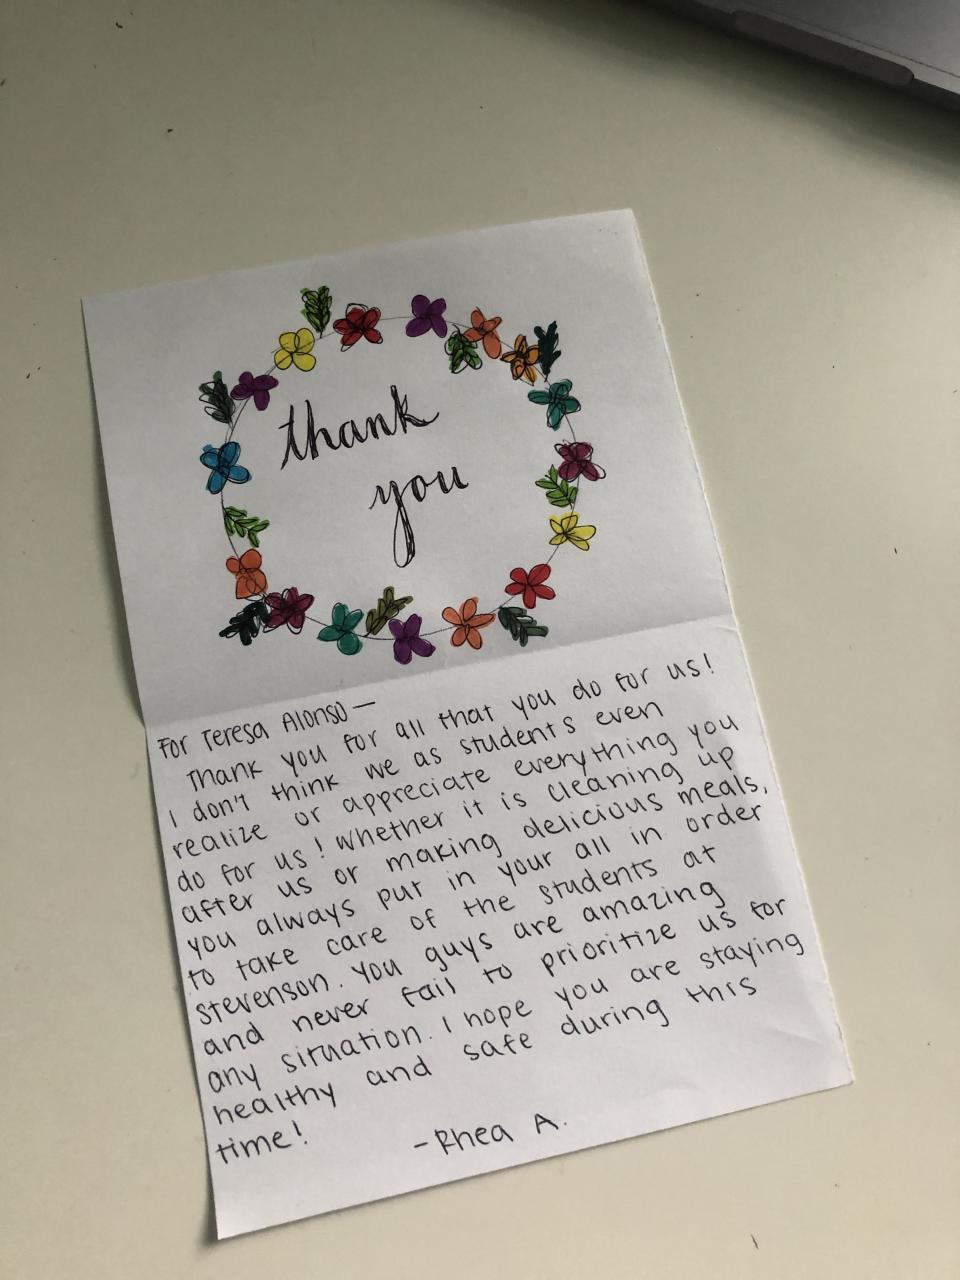 thank
you
For Teresa Alonso —
Thank you for all that you do for us!
I don't think we as students even
realize or appreciate everything you
do for us! Whether it is cleaning up
after us or making delicious meals,
you always put in your all in order
to take care of the students at
Stevenson. You guys are amazing
and never fail to prioritize us for
any situation. I hope you are staying
healthy and safe during this
time!
- Rhea A.